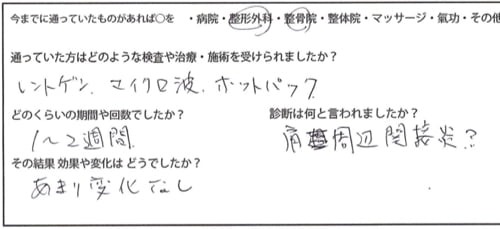 今までに通っていたものがあれば○を ・病院・整形外科・整骨院・整体院・マッサージ・氣功・その他
通っていた方はどのような検査や治療・施術を受けられましたか？
レントゲン、マイクロ波、ホットパック
どのくらいの期間や回数でしたか？ 診断は何と言われましたか？
1〜2週間 肩周辺関接炎？
その結果 効果や変化は どうでしたか？
あまり変化なし